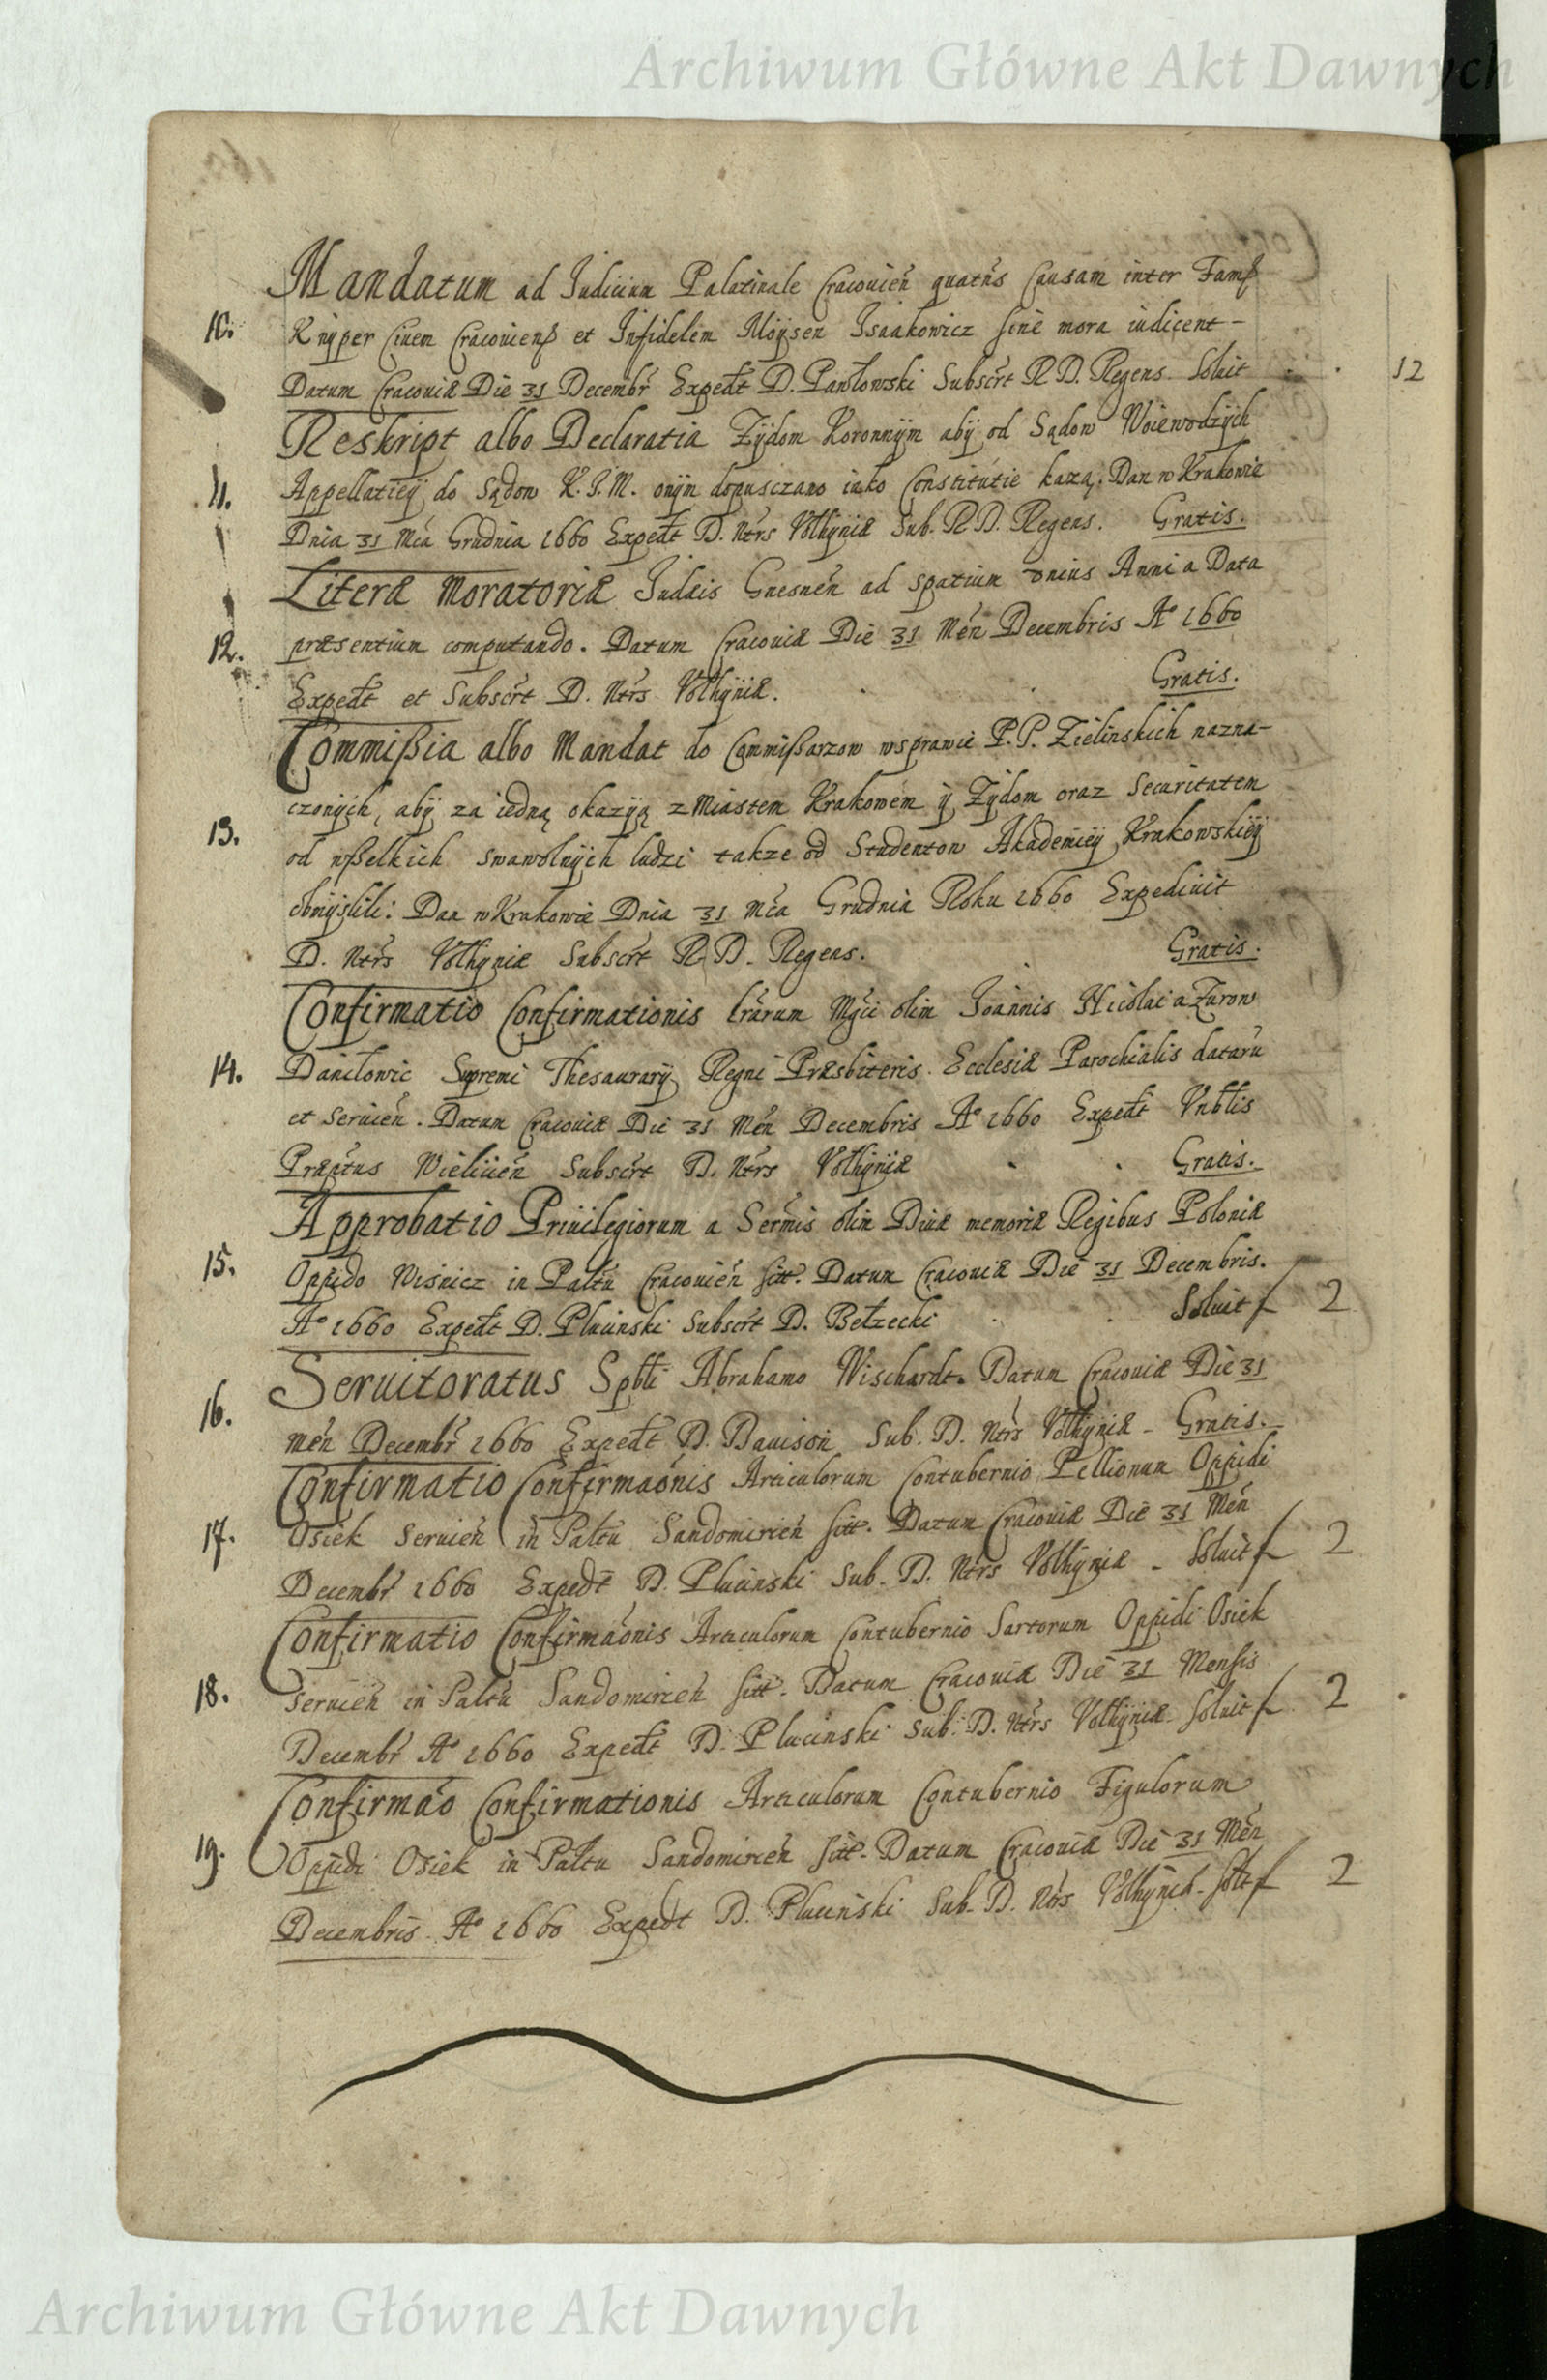 Archiwum Główne Akt Dawnych
Mandatum ad Judicium Palatinale Cracouień quatńs Causam inter Famß
10. Knÿper Ciuem Cracouienß et Infidelem Moÿsen Isaakowicz sine mora iudicent -
Datum Cracouiæ Die 31 Decembr Expedt D. Pawłowski Subscrt R D. Regens. Soluit 12
Reskript albo Declaratia Zÿdom Koronnÿm abÿ od Sądow Woiewodzÿch
11. Appellatieÿ do Sądow K. J. M. onÿm dopusczano iako Constitutie każą. Dan w Krakowie
Dnia 31 Mca Grudnia 1660 Expedt D. Ntrs Volhÿniæ Sub. R D. Regens. Gratis.
Literæ Moratoriæ Judæis Gnesneń ad spatium vnius Anni a Data
12. præsentium computando. Datum Cracouiæ Die 31 Meń Decembris A° 1660
Expedt et Subscrt D. Ntrs Volhÿniæ. Gratis.
Commißia albo Mandat do Commißarzow wsprawie P. P. Zielinskich nazna-
czonÿch, abÿ za iedną okazÿą z Miastem Krakowem ÿ Zÿdom oraz Securitatem
13. od wßelkich swawolnÿch ludzi takze od Studentow Akademieÿ Krakowskieÿ
obmÿslili: Dan w Krakowie Dnia 31 Mca Grudnia Roku 1660 Expediuit
D. Ntrs Volhÿniæ Subscrt R D. Regens. Gratis.
Confirmatio Confirmationis lrarum Mgci olim Joannis Nicolai a Zurow
14. Daniłowic Supremi Thesaurarÿ Regni Præsbiteris Ecclesiæ Parochialis dataru
et seruień. Datum Cracouiæ Die 31 Meń Decembris A° 1660 Expedt Vnblis
Præptus Wielicień Subscrt D. Ntrs Volhÿniæ Gratis.
Approbatio Priuilegiorum a Sermis olim Diuæ memoriæ Regibus Poloniæ
15. Oppido Wisnicz in Paltu Cracouień sitt. Datum Cracouiæ Die 31 Decembris.
A° 1660 Expedt D. Plucinski Subscrt D. Bełzecki Soluit f 2
Seruitoratus Spbli Abrahamo Wischardt. Datum Cracouiæ Die 31
16. meń Decembr 1660 Expedt D. Dauison Sub. D. Ntrs Volhÿniæ - Gratis.
Confirmatio Confirmaonis Articulorum Contubernio Pellionum Oppidi
17. Osiek Seruień in Paltu Sandomirień sitt. Datum Cracouiæ Die 31 Meń
Decembr 1660 Expedt D. Plucinski Sub. D. Ntrs Volhÿniæ - Soluit f 2
Confirmatio Confirmaonis Articulorum Contubernio Sartorum Oppidi Osiek
18. seruień in Paltu Sandomirień sitt. Datum Cracouiæ Die 31 Mensis
Decembr A° 1660 Expedt D. Plucinski Sub. D. Ntrs Volhÿniæ Soluit f 2
Confirmao Confirmationis Articulorum Contubernio Figulorum
19. Oppidi Osiek in Paltu Sandomirień sitt. Datum Cracouiæ Die 31 Meń
Decembris A° 1660 Expedt D. Plucinski Sub. D. Ntrs Volhÿniæ. solt f 2
Archiwum Główne Akt Dawnych